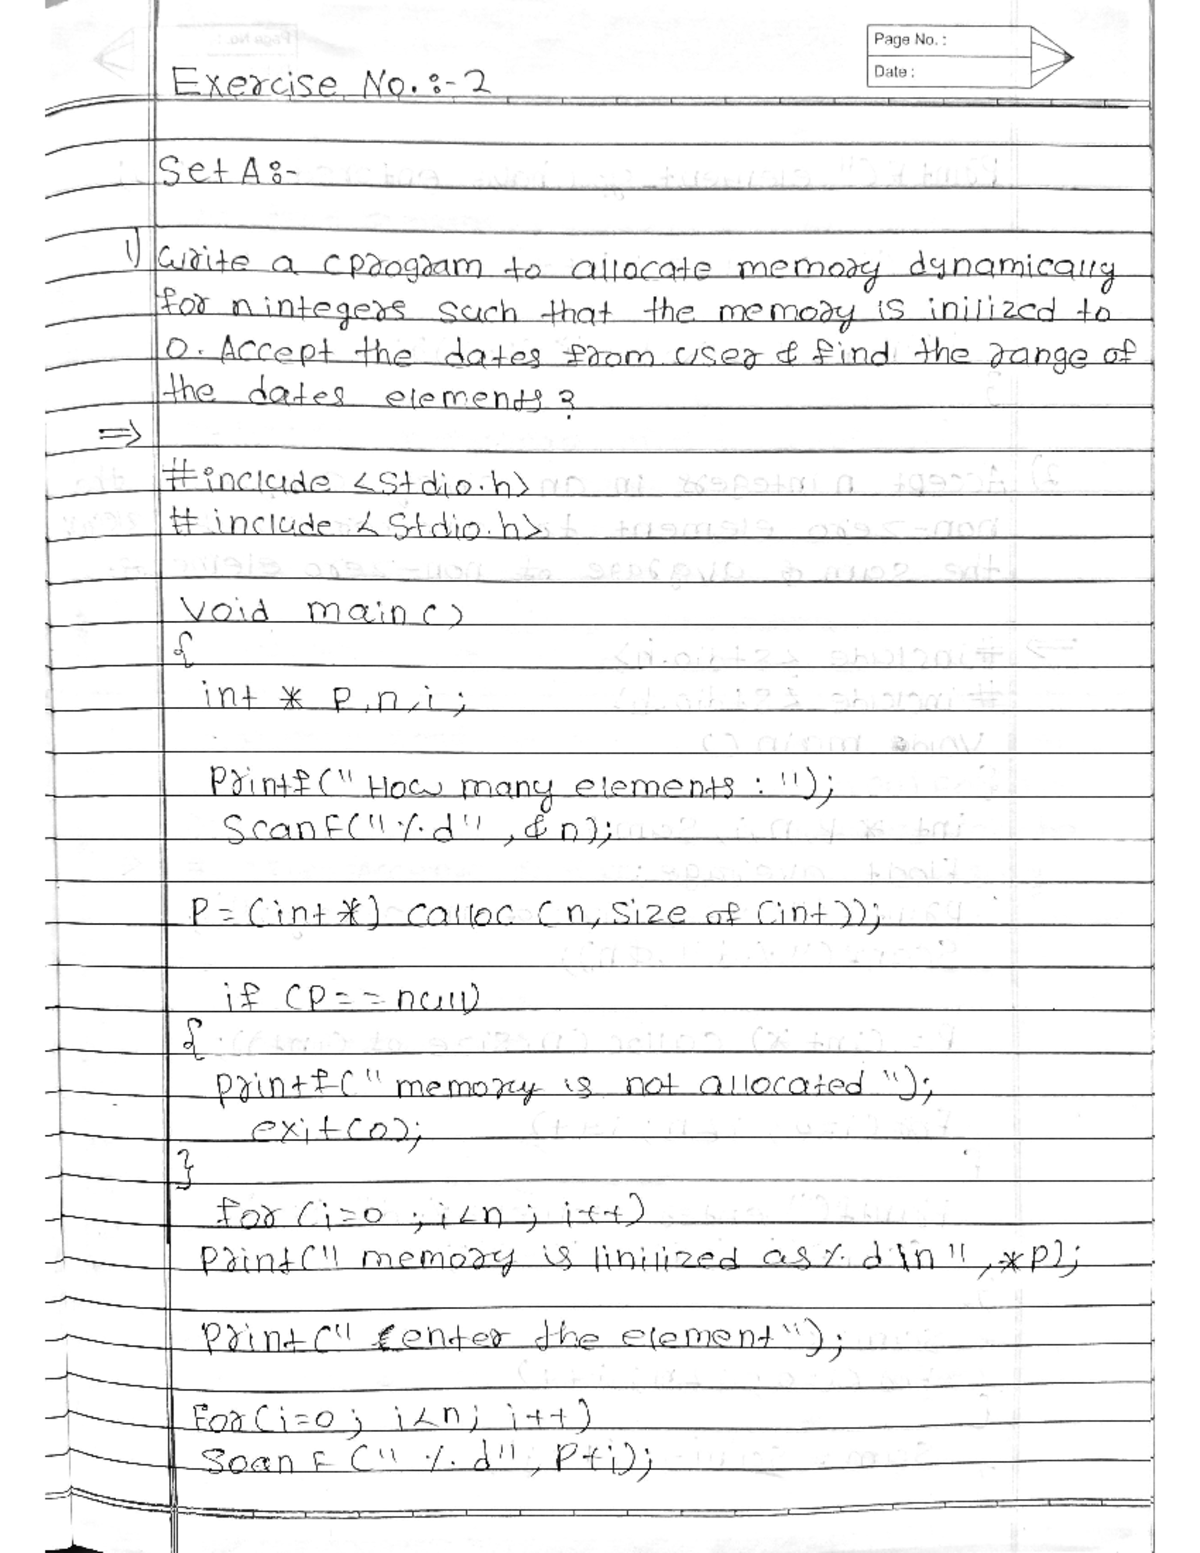 Page No. :
Date :
Exercise No. :- 2
Set A :-
1) Write a c program to allocate memory dynamically
for n integers such that the memory is inilized to
0. Accept the dates from user & find the range of
the dates elements ?
=>
#include <Stdio.h>
# include < Stdio.h>
void main ()
{
int * P, n, i ;
printf (" How many elements : ");
ScanF(" %d" , & n);
P = (int *) calloc ( n, Size of (int));
if (P = = null)
{
printf (" memory is not allocated ");
exit (0);
}
for (i=0 ; i<n ; i++)
print (" memory is linilized as %d \n" , *p);
print (" enter the element ");
For (i=0 ; i<n ; i++)
Scan F (" %d", P+i);